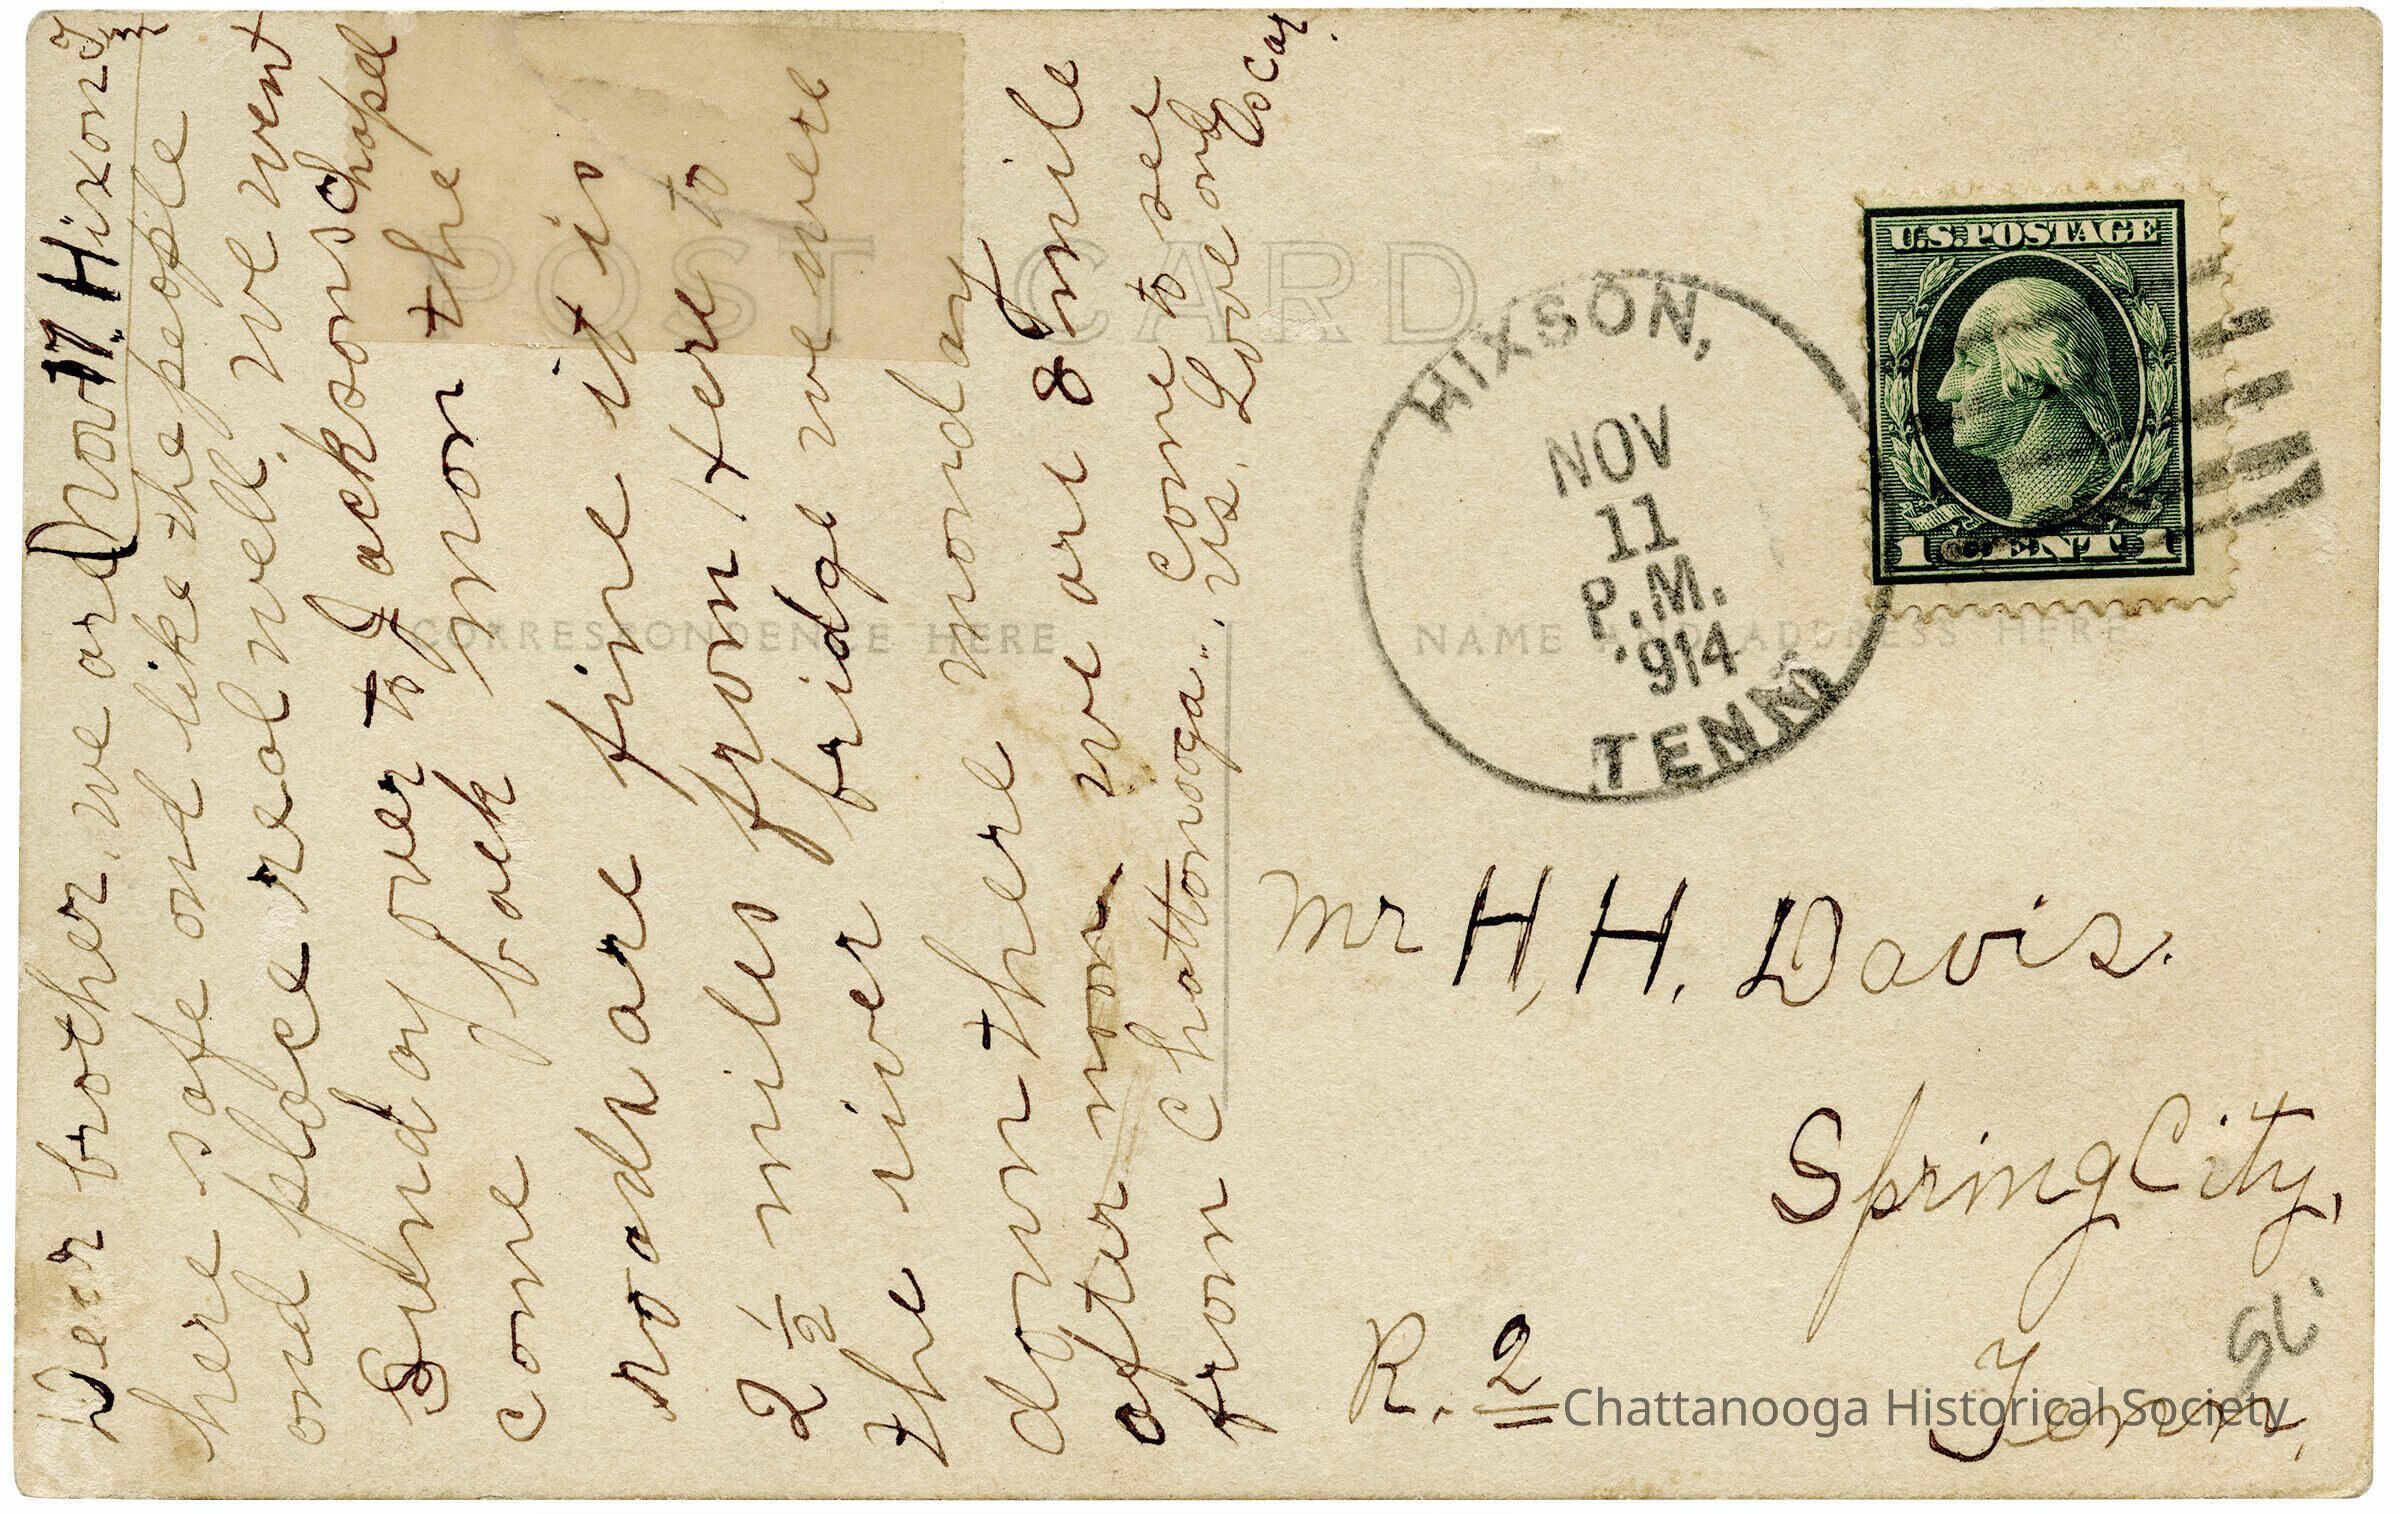 Nov "17." Hixon, T
Dear brother. we are
here safe and like the people
and place real well. we went
Sunday over to Jacksons Chapel
come back mon the
roads are fine it is
2 1/2 miles from Here to
the river bridge we were
down there monday
after noon we are 8 mile
from Chattanooga. come to see
us. Love only Oscar.
POST CARD
CORRESPONDENCE HERE
NAME AND ADDRESS HERE
U.S. POSTAGE
1 CENT 1
HIXSON,
NOV
11
P.M.
1914
TENN.
Mr H, H. Davis.
Spring City,
R. 2
Tenn.
Chattanooga Historical Society